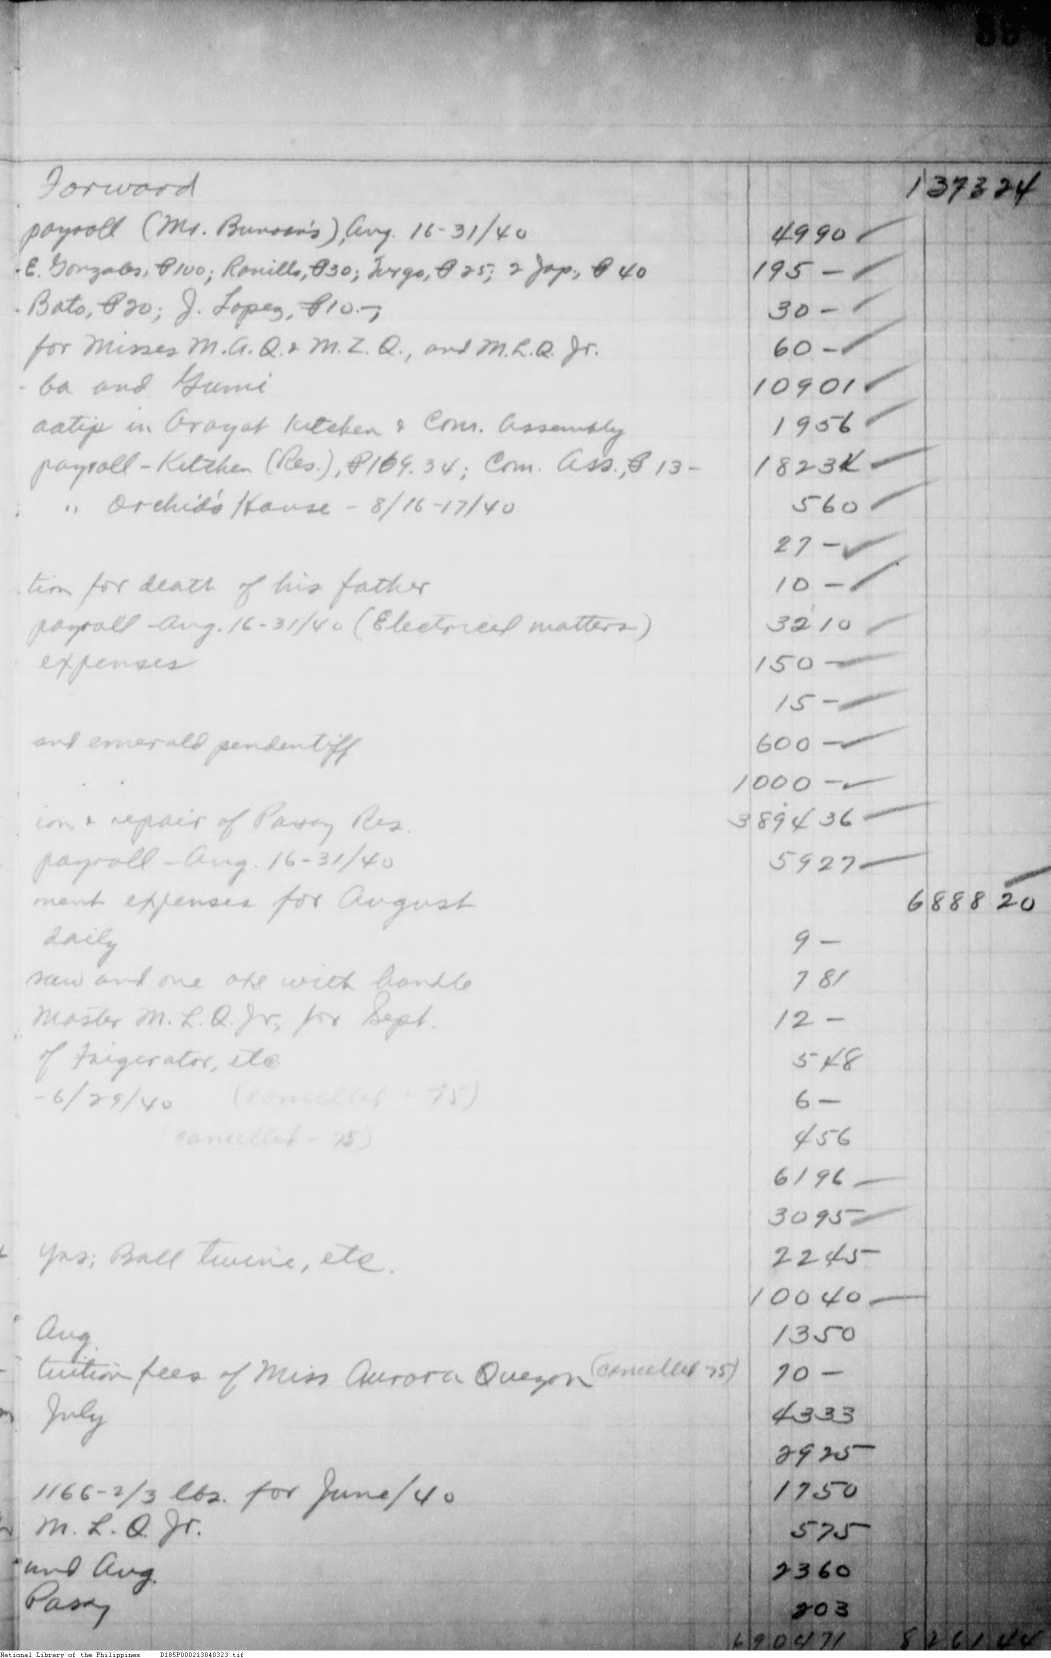 Forward 1373 24
payroll (Mr. Bunoan's), Aug. 16-31/40 49 90
E. Gonzales, ₱100; Ronillo, ₱30; Jurgo, ₱25; 2 Jap., ₱40 195 -
Bato, ₱20; J. Lopez, ₱10.-; 30 -
for Misses M.A.Q. & M.Z.Q., and M.L.Q. Jr. 60 -
ba and Gumi 109 01
aatip in Arayat Kitchen & Com. Assembly 19 56
payroll - Kitchen (Res.), ₱169.34; Com. Ass., ₱13- 182 34
" Orchids House - 8/16-17/40 5 60
27 -
tion for death of his father 10 -
payroll - Aug. 16-31/40 (Electrical matters) 32 10
expenses 150 -
15 -
and emerald pendentiff 600 -
1000 -
ion & repair of Pasay Res. 3894 36
payroll - Aug. 16-31/40 59 27
ment expenses for August 6888 20
daily 9 -
saw and one axe with handle 7 81
Master M.L.Q. Jr., for Sept. 12 -
of Frigerator, etc 5 48
-6/29/40 (cancelled - 75) 6 -
(cancelled - 75) 4 56
61 96
30 95
yas; Ball twine, etc. 22 45
100 40
Aug. 13 50
tuition fees of Miss Aurora Quezon (cancelled 75) 70 -
July 43 33
29 25
1166-2/3 lbs. for June/40 17 50
M. L. Q. Jr. 5 75
and Aug. 23 60
Pasay 2 03
6904 71 8261 44
National Library of the Philippines D185P000213840323.tif